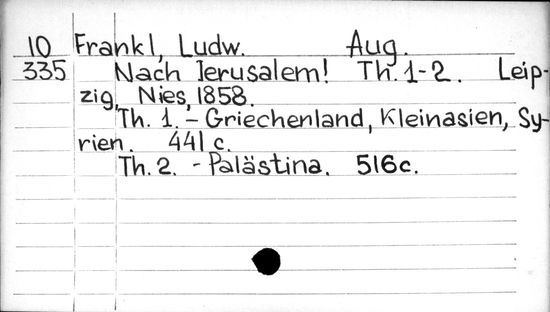 10 Frankl, Ludw. Aug.
335 Nach Jerusalem! Th. 1-2. Leip-
zig, Nies, 1858.
Th. 1. – Griechenland, Kleinasien, Sy-
rien. 441 c.
Th. 2. - Palästina. 516c.